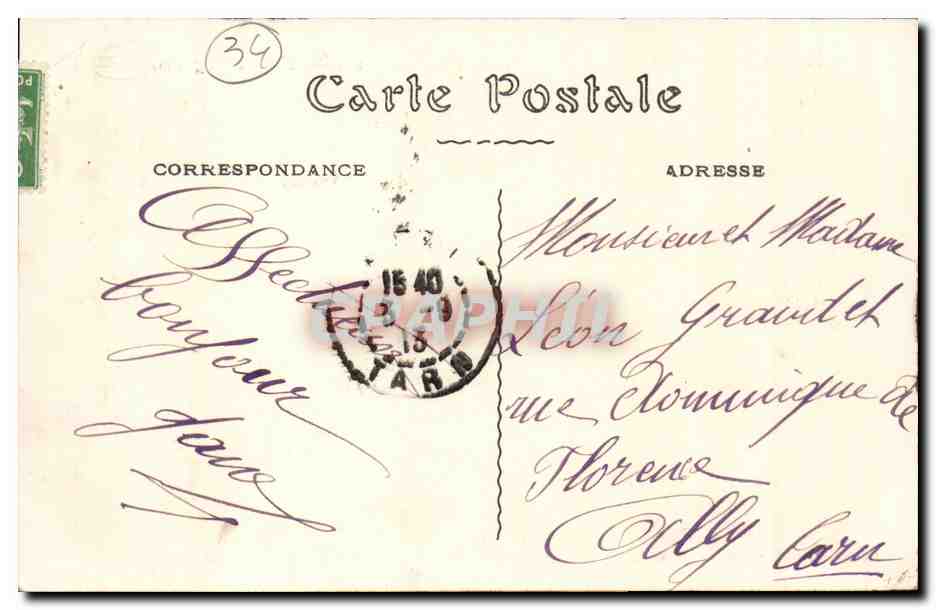 34
Carte Postale
CORRESPONDANCE
ADRESSE
Affectueux
bonjour
Monsieur et Madame
Léon Graulet
rue Dominique de
Florence
Alby Tarn
15 40
13
TARN
CPAPHIL